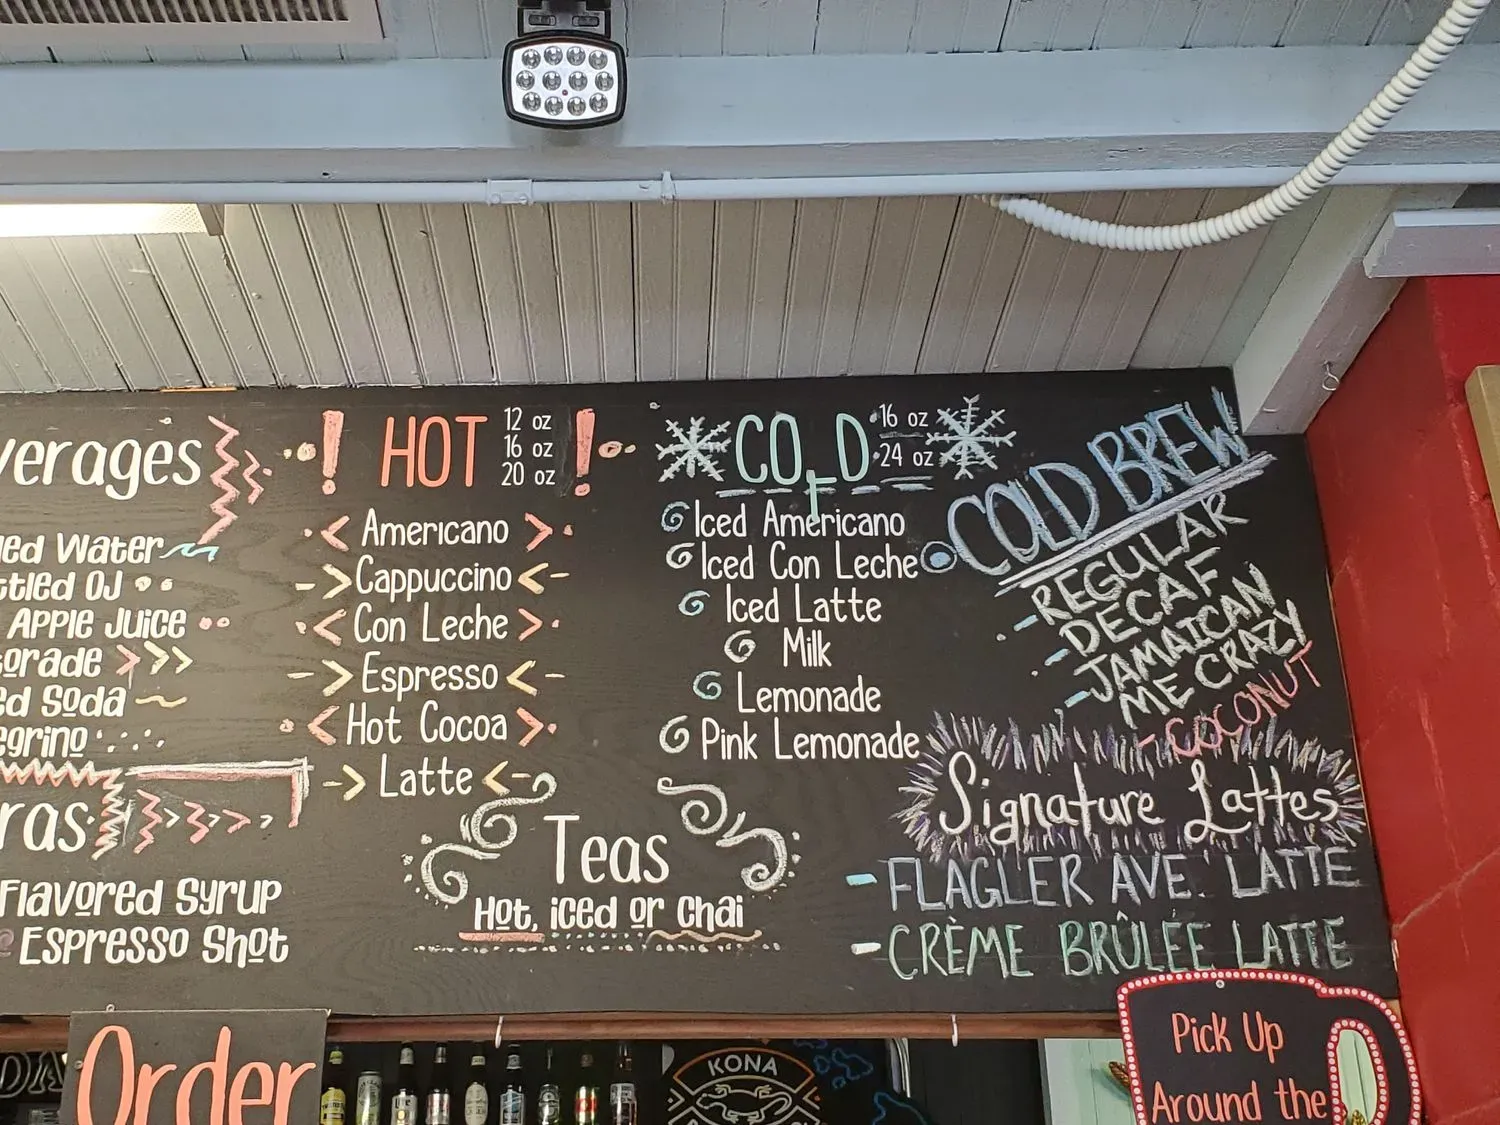 HOT
12 oz
16 oz
20 oz
Americano
Cappuccino
Con Leche
Espresso
Hot Cocoa
Latte
COLD
16 oz
24 oz
Iced Americano
Iced Con Leche
Iced Latte
Milk
Lemonade
Pink Lemonade
COLD BREW
- REGULAR
- DECAF
- JAMAICAN
ME CRAZY
- COCONUT
Water
OJ
Apple Juice
Soda
Flavored Syrup
Espresso Shot
Teas
Hot, iced or Chai
Signature Lattes
- FLAGLER AVE. LATTE
- CRÈME BRÛLÉE LATTE
Order
KONA
Pick Up
Around the